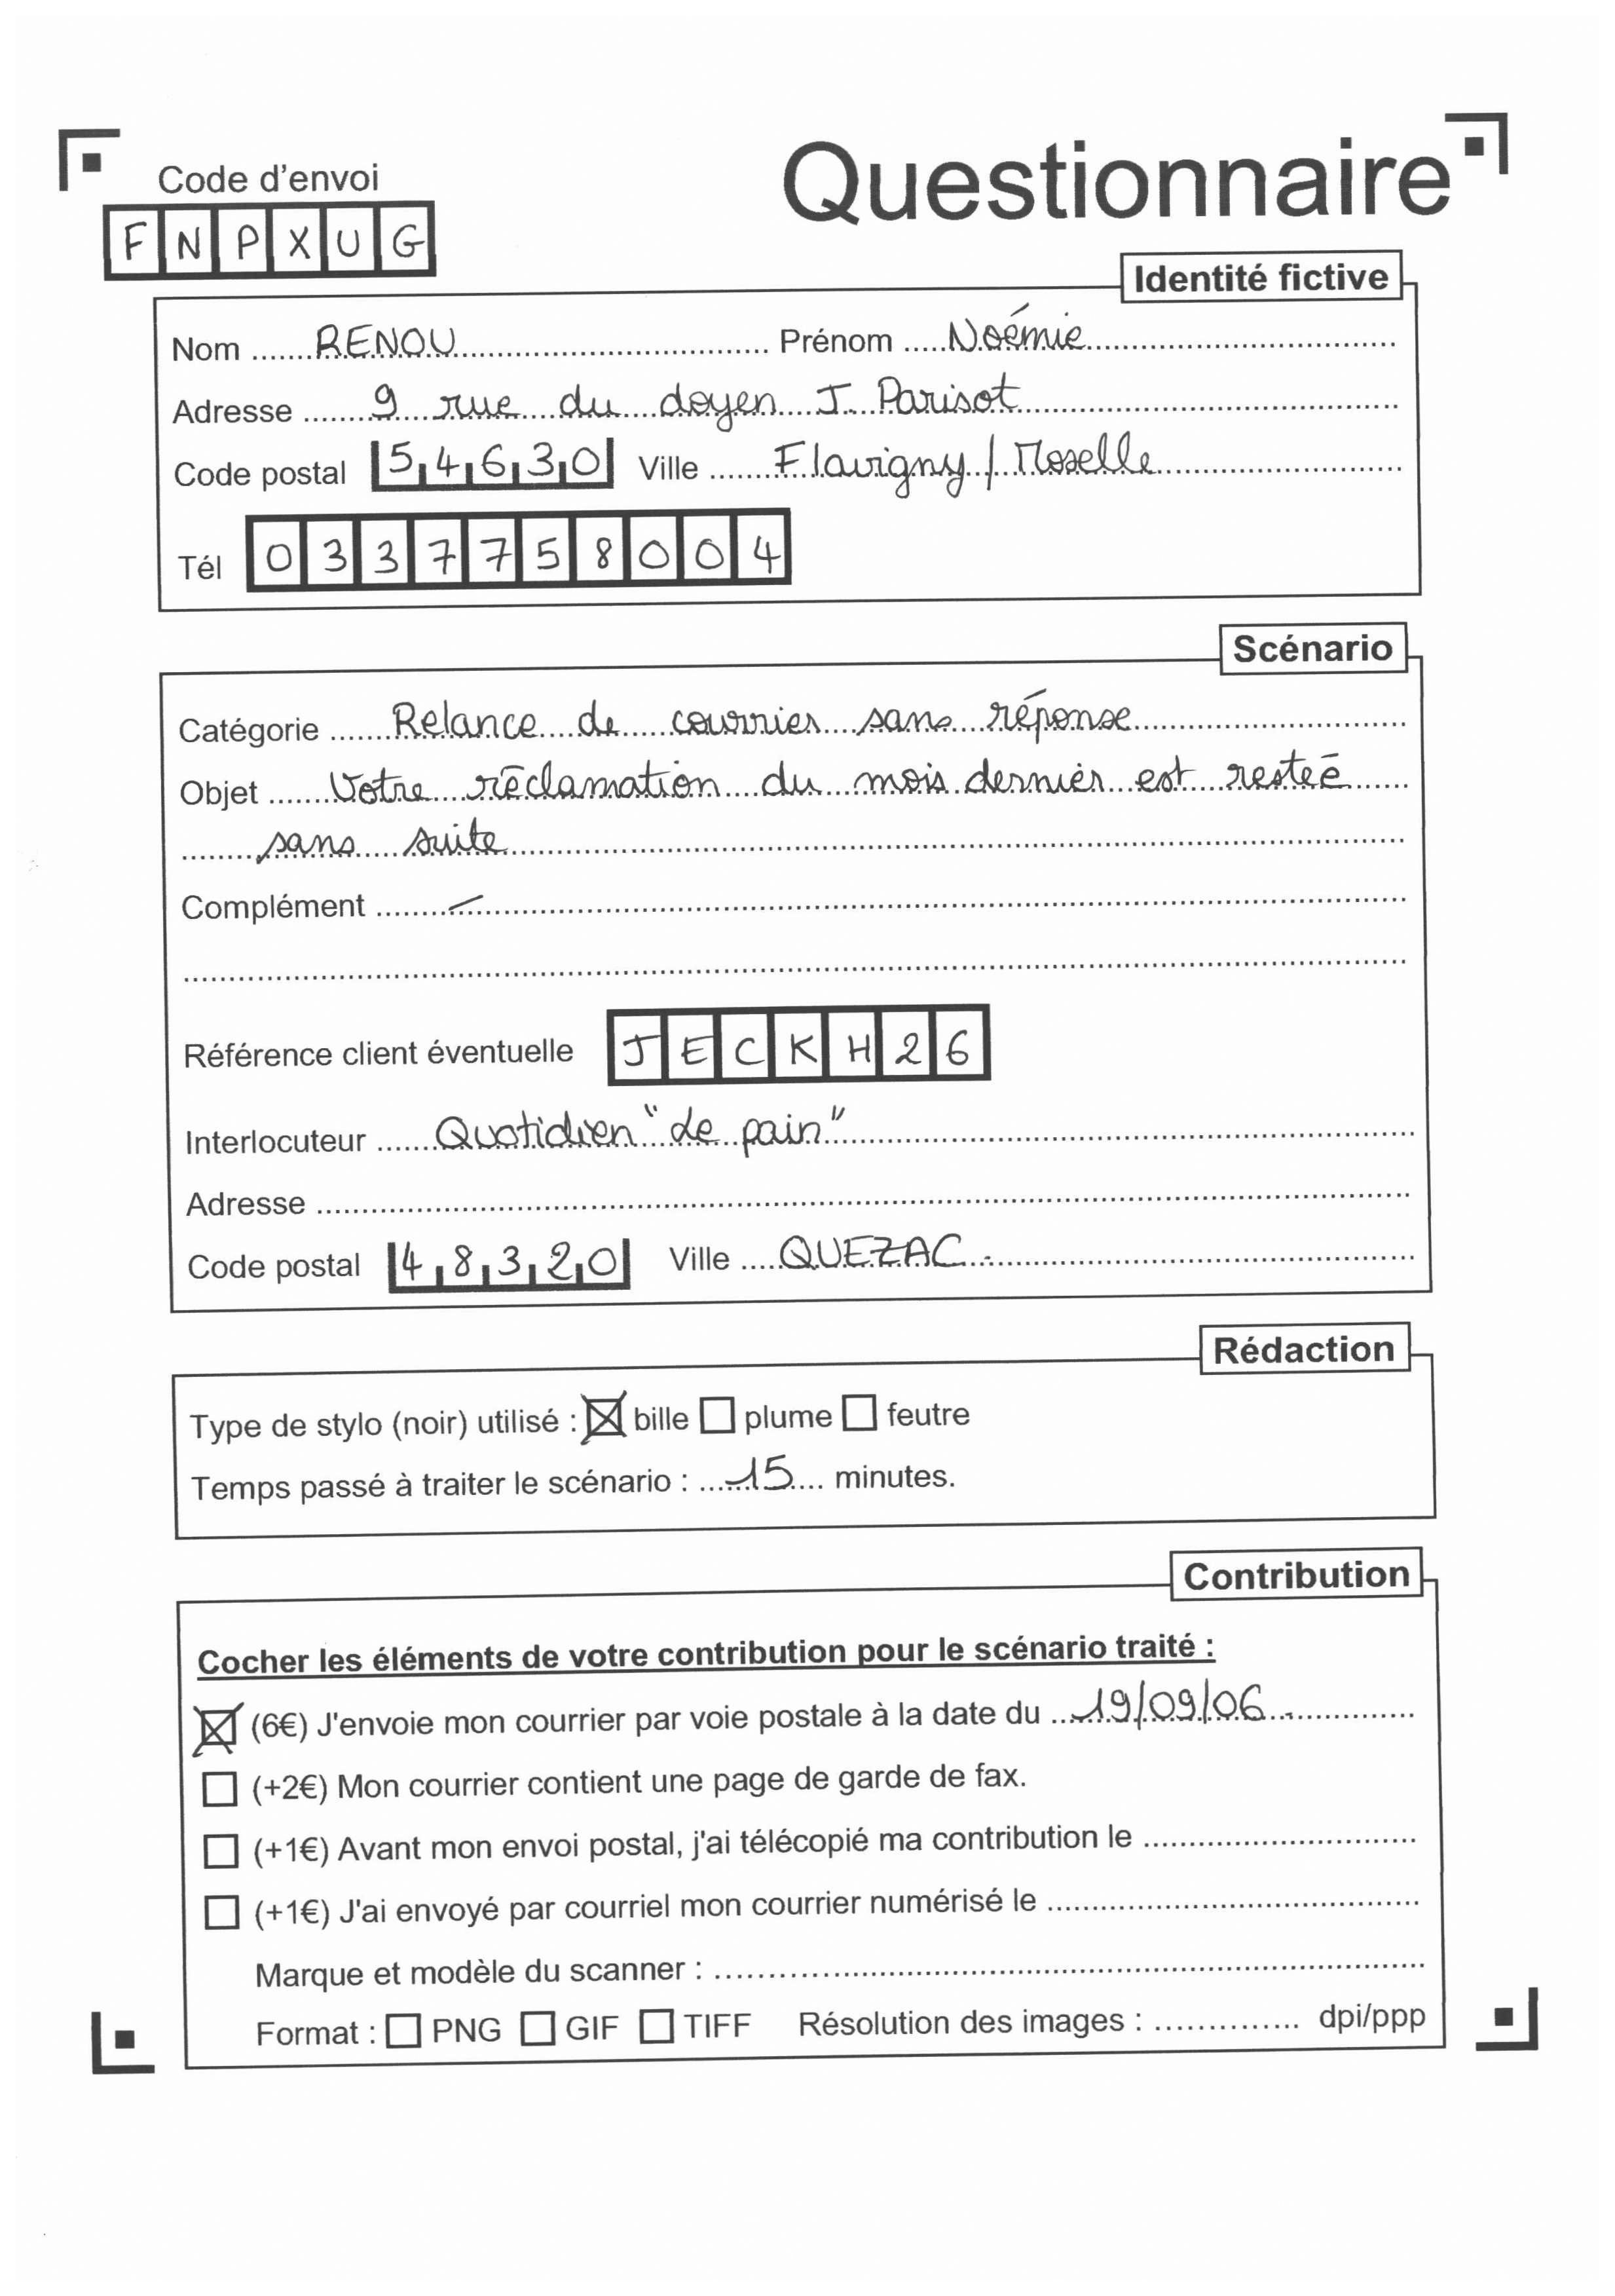 Questionnaire
Code d'envoi
F N P X U G
Identité fictive
Nom ....... RENOU ....... Prénom ..... Noémie .......
Adresse ....... 9 rue du doyen J. Parisot .......
Code postal 5 4 6 3 0 Ville ....... Flavigny / Moselle .......
Tél 0 3 3 7 7 5 8 0 0 4
Scénario
Catégorie ...... Relance de courrier sans réponse .......
Objet ...... Votre réclamation du mois dernier est restée .......
....... sans suite .......
Complément ....... — .......
Référence client éventuelle J E C K H 2 6
Interlocuteur ...... Quotidien "de pain" .......
Adresse .......
Code postal 4 8 3 2 0 Ville .... QUEZAC .......
Rédaction
Type de stylo (noir) utilisé : ☒ bille ☐ plume ☐ feutre
Temps passé à traiter le scénario : ...15... minutes.
Contribution
Cocher les éléments de votre contribution pour le scénario traité :
☒ (6€) J'envoie mon courrier par voie postale à la date du ... 19/09/06 .......
☐ (+2€) Mon courrier contient une page de garde de fax.
☐ (+1€) Avant mon envoi postal, j'ai télécopié ma contribution le .......
☐ (+1€) J'ai envoyé par courriel mon courrier numérisé le .......
Marque et modèle du scanner : .......
Format : ☐ PNG ☐ GIF ☐ TIFF Résolution des images : .............. dpi/ppp